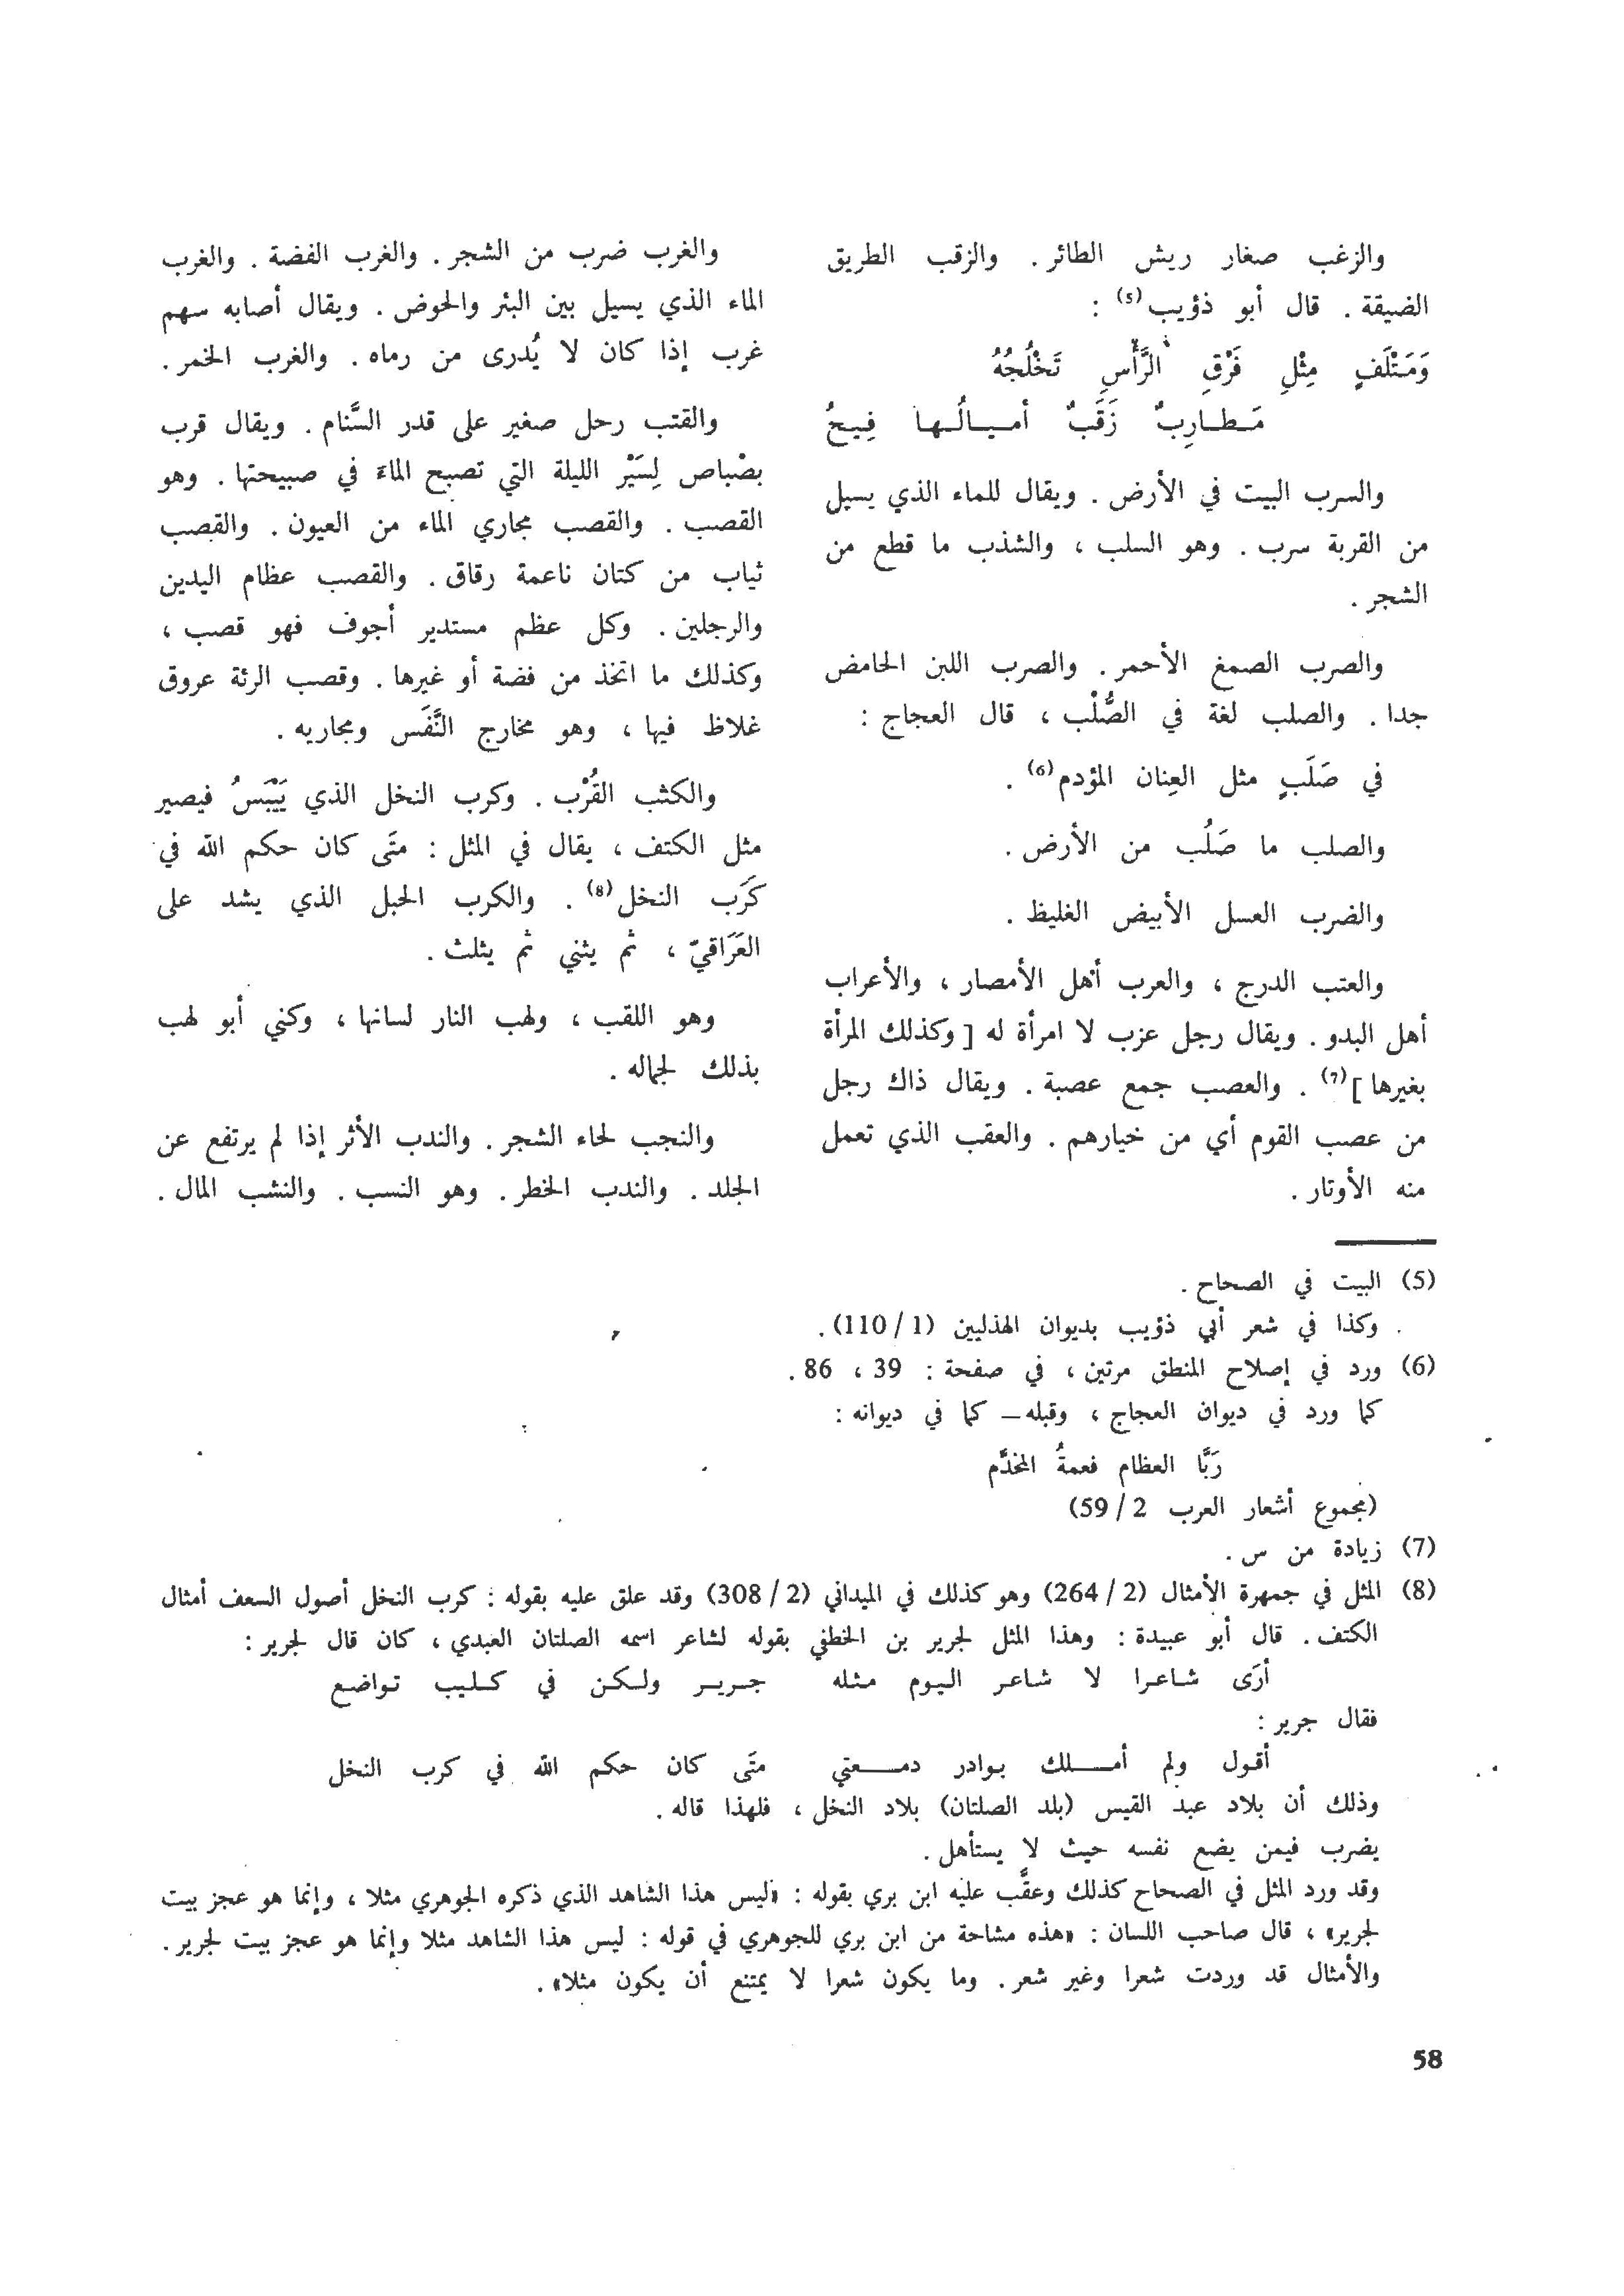 والزغب صغار ريش الطائر . والزقب الطريق
الضيقة . قال أبو ذؤيب(5) :
وَمَتْلَفٍ مِثْلِ فَرْقِ الرَّأْسِ تَخْلُجُهُ
مَـطـارِبٌ زَقَبٌ أمـيـالُـها فِيـحُ
والسرب البيت في الأرض . ويقال للماء الذي يسيل
من القربة سرب . وهو السلب ، والشذب ما قطع من
الشجر .
والصرب الصمغ الأحمر . والصرب اللبن الحامض
جدا . والصلب لغة في الصُّلْب ، قال العجاج :
في صَلَبٍ مثل العِنان المؤدم(6) .
والصلب ما صَلُب من الأرض .
والضرب العسل الأبيض الغليظ .
والعتب الدرج ، والعرب أهل الأمصار ، والأعراب
أهل البدو . ويقال رجل عزب لا امرأة له [ وكذلك المرأة
بغيرها ](7) . والعصب جمع عصبة . ويقال ذاك رجل
من عصب القوم أي من خيارهم . والعقب الذي تعمل
منه الأوتار .
والغرب ضرب من الشجر . والغرب الفضة . والغرب
الماء الذي يسيل بين البئر والحوض . ويقال أصابه سهم
غرب إذا كان لا يُدرى من رماه . والغرب الخمر .
والقتب رحل صغير على قدر السَّنام . ويقال قرب
بصْباص لِسَيْر الليلة التي تصبح الماءَ في صبيحتها . وهو
القصب . والقصب مجاري الماء من العيون . والقصب
ثياب من كتان ناعمة رقاق . والقصب عظام اليدين
والرجلين . وكل عظم مستدير أجوف فهو قصب ،
وكذلك ما اتخذ من فضة أو غيرها . وقصب الرئة عروق
غلاظ فيها ، وهو مخارج النَّفَس ومجاريه .
والكثب القُرْب . وكرب النخل الذي يَيْبَسُ فيصير
مثل الكتف ، يقال في المثل : متَى كان حكم الله في
كَرَب النخل(8) . والكرب الحبل الذي يشد على
العَرَاقيّ ، ثم يثني ثم يثلث .
وهو اللقب ، ولهب النار لسانها ، وكني أبو لهب
بذلك لجماله .
والنجب لحاء الشجر . والندب الأثر إذا لم يرتفع عن
الجلد . والندب الخطر . وهو النسب . والنشب المال .
(5) البيت في الصحاح .
وكذا في شعر أبي ذؤيب بديوان الهذليين (1/ 110) .
(6) ورد في إصلاح المنطق مرتين ، في صفحة : 39 ، 86 .
كما ورد في ديوان العجاج ، وقبله – كما في ديوانه :
رَيَّا العظام فعمةُ المخدَّم
(مجموع أشعار العرب 2 /59)
(7) زيادة من س .
(8) المثل في جمهرة الأمثال (2/ 264) وهو كذلك في الميداني (2/ 308) وقد علق عليه بقوله : كرب النخل أصول السعف أمثال
الكتف . قال أبو عبيدة : وهذا المثل لجرير بن الخطفي بقوله لشاعر اسمه الصلتان العبدي ، كان قال لجرير :
أرَى شاعرا لا شاعر اليوم مثله جرير ولكن في كليب تواضع
فقال جرير :
أقول ولم أمـلك بوادر دمـعتي متَى كان حكم الله في كرب النخل
وذلك أن بلاد عبد القيس (بلد الصلتان) بلاد النخل ، فلهذا قاله .
يضرب فيمن يضع نفسه حيث لا يستأهل .
وقد ورد المثل في الصحاح كذلك وعقَّب عليه ابن بري بقوله : «ليس هذا الشاهد الذي ذكره الجوهري مثلا ، وإنما هو عجز بيت
لجرير» ، قال صاحب اللسان : «هذه مشاحة من ابن بري للجوهري في قوله : ليس هذا الشاهد مثلا وإنما هو عجز بيت لجرير .
والأمثال قد وردت شعرا وغير شعر . وما يكون شعرا لا يمتنع أن يكون مثلا» .
58